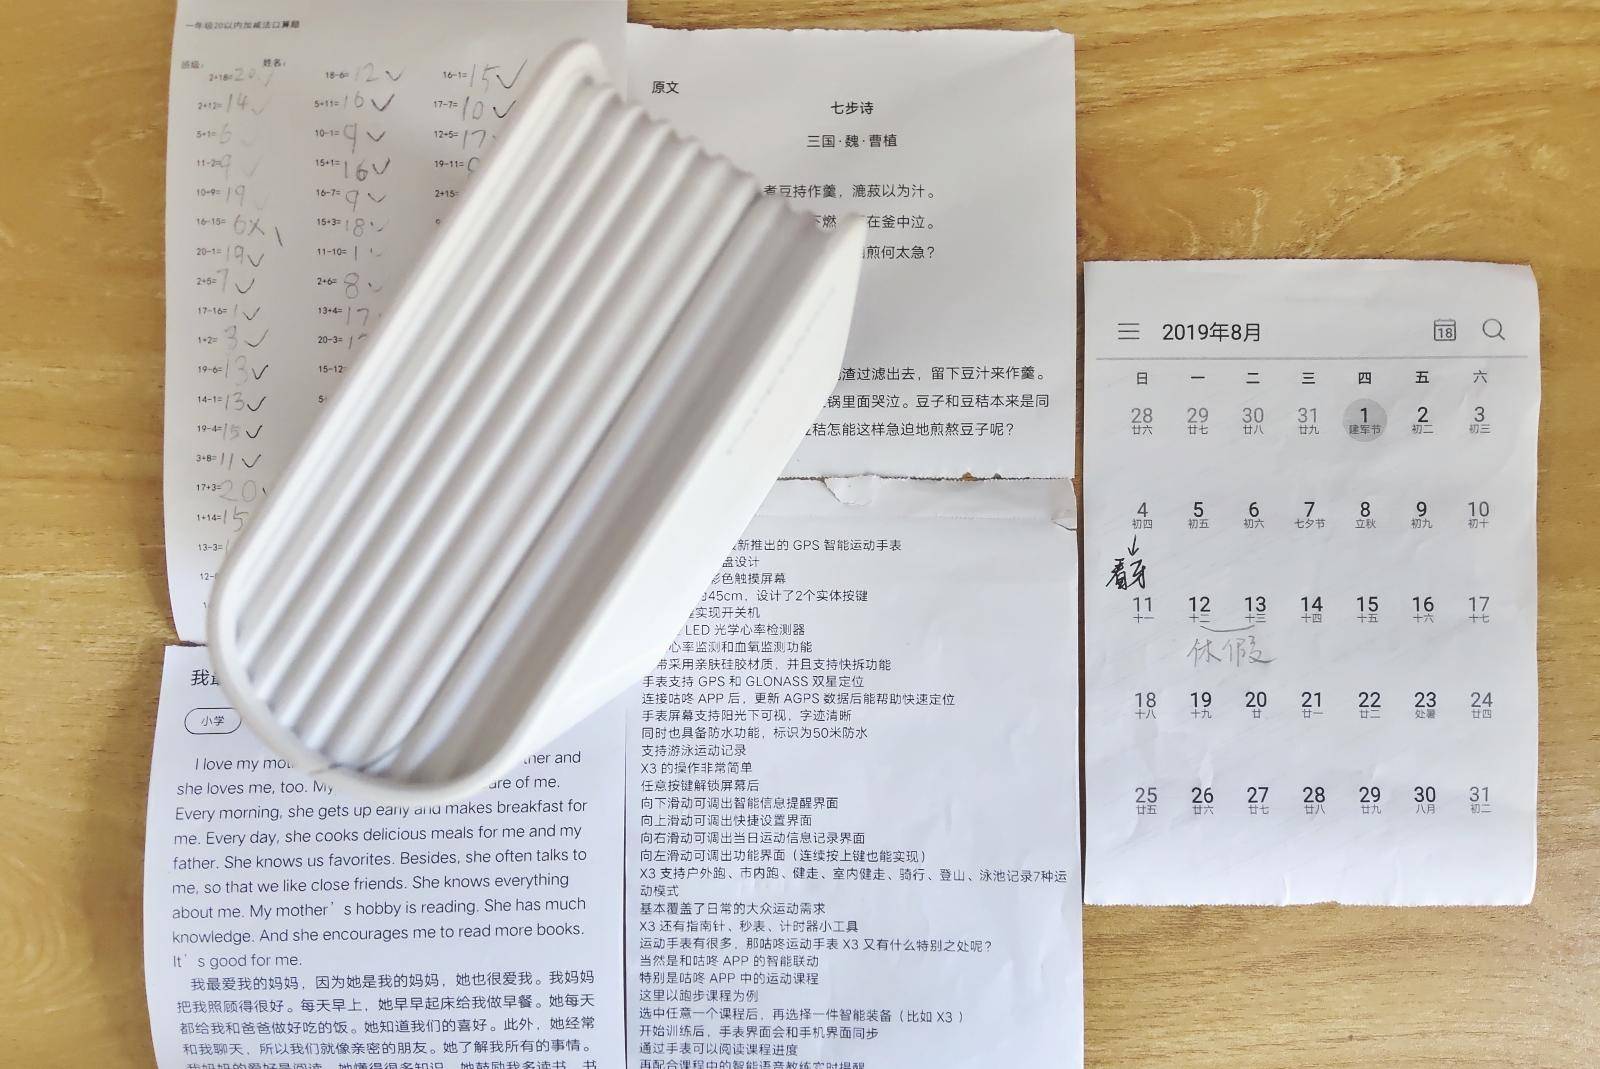 一年级20以内加减法口算题
班级: 姓名:
2+18=20 18-6=12✓ 16-1=15✓
2+12=14✓ 5+11=16✓ 17-7=10✓
5+1=6✓ 10-1=9✓ 12+5=17✓
11-2=9✓ 15+1=16✓ 19-11=
10+9=19✓ 16-7=9✓ 2+15=
16-15=6× 15+3=18✓
20-1=19✓ 11-10=1✓
2+5=7✓ 2+6=8✓
17-16=1✓ 13+4=17
1+2=3✓ 20-3=1
19-6=13✓ 15-12=
14-1=13✓
19-4=15✓
3+8=11✓
17+3=20✓
1+14=15
13-3=
12-
原文
七步诗
三国·魏·曹植
煮豆持作羹，漉菽以为汁。
燃 在釜中泣。
煎何太急?
渣过滤出去，留下豆汁来作羹。
锅里面哭泣。豆子和豆秸本来是同
秸怎能这样急迫地煎熬豆子呢?
2019年8月 18
日 一 二 三 四 五 六
28 29 30 31 1 2 3
廿六 廿七 廿八 廿九 建军节 初二 初三
4 5 6 7 8 9 10
初四 初五 初六 七夕节 立秋 初九 初十
↓
看牙
11 12 13 14 15 16 17
十一 十二 十三 十四 十五 十六 十七
休假
18 19 20 21 22 23 24
十八 十九 廿 廿一 廿二 处暑 廿四
25 26 27 28 29 30 31
廿五 廿六 廿七 廿八 廿九 八月 初二
新推出的 GPS 智能运动手表
盘设计
彩色触摸屏幕
45cm，设计了2个实体按键
实现开关机
LED 光学心率检测器
心率监测和血氧监测功能
带采用亲肤硅胶材质，并且支持快拆功能
手表支持 GPS 和 GLONASS 双星定位
连接咕咚 APP 后，更新 AGPS 数据后能帮助快速定位
手表屏幕支持阳光下可视，字迹清晰
同时也具备防水功能，标识为50米防水
支持游泳运动记录
X3 的操作非常简单
任意按键解锁屏幕后
向下滑动可调出智能信息提醒界面
向上滑动可调出快捷设置界面
向右滑动可调出当日运动信息记录界面
向左滑动可调出功能界面（连续按上键也能实现）
X3 支持户外跑、市内跑、健走、室内健走、骑行、登山、泳池记录7种运
动模式
基本覆盖了日常的大众运动需求
X3 还有指南针、秒表、计时器小工具
运动手表有很多，那咕咚运动手表 X3 又有什么特别之处呢?
当然是和咕咚 APP 的智能联动
特别是咕咚 APP 中的运动课程
这里以跑步课程为例
选中任意一个课程后，再选择一件智能装备（比如 X3 ）
开始训练后，手表界面会和手机界面同步
通过手表可以阅读课程进度
再配合课程中的智能语音教练实时提醒
我最
小学
I love my mot ther and
she loves me, too. My are of me.
Every morning, she gets up early and makes breakfast for
me. Every day, she cooks delicious meals for me and my
father. She knows us favorites. Besides, she often talks to
me, so that we like close friends. She knows everything
about me. My mother's hobby is reading. She has much
knowledge. And she encourages me to read more books.
It's good for me.
我最爱我的妈妈，因为她是我的妈妈，她也很爱我。我妈妈
把我照顾得很好。每天早上，她早早起床给我做早餐。她每天
都给我和爸爸做好吃的饭。她知道我们的喜好。此外，她经常
和我聊天，所以我们就像亲密的朋友。她了解我所有的事情。
我妈妈的爱好是阅读，她懂得很多知识，她鼓励我多读书，书